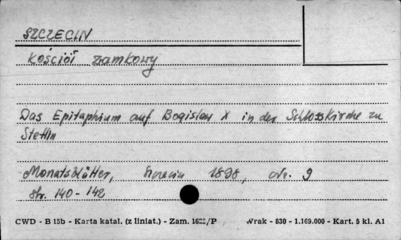 SZCZECIN
Kościół zamkowy
Das Epitaphium auf Bogislav X in der Schlosskirche zu
Stettin
Monatsblätter, 1898, nr. 9
str. 140 - 142
CWD - B 15b - Karta katal. (z liniat.) - Zam. /P Wrak - 630 - 1.169.000 - Kart. 5 kl. A1